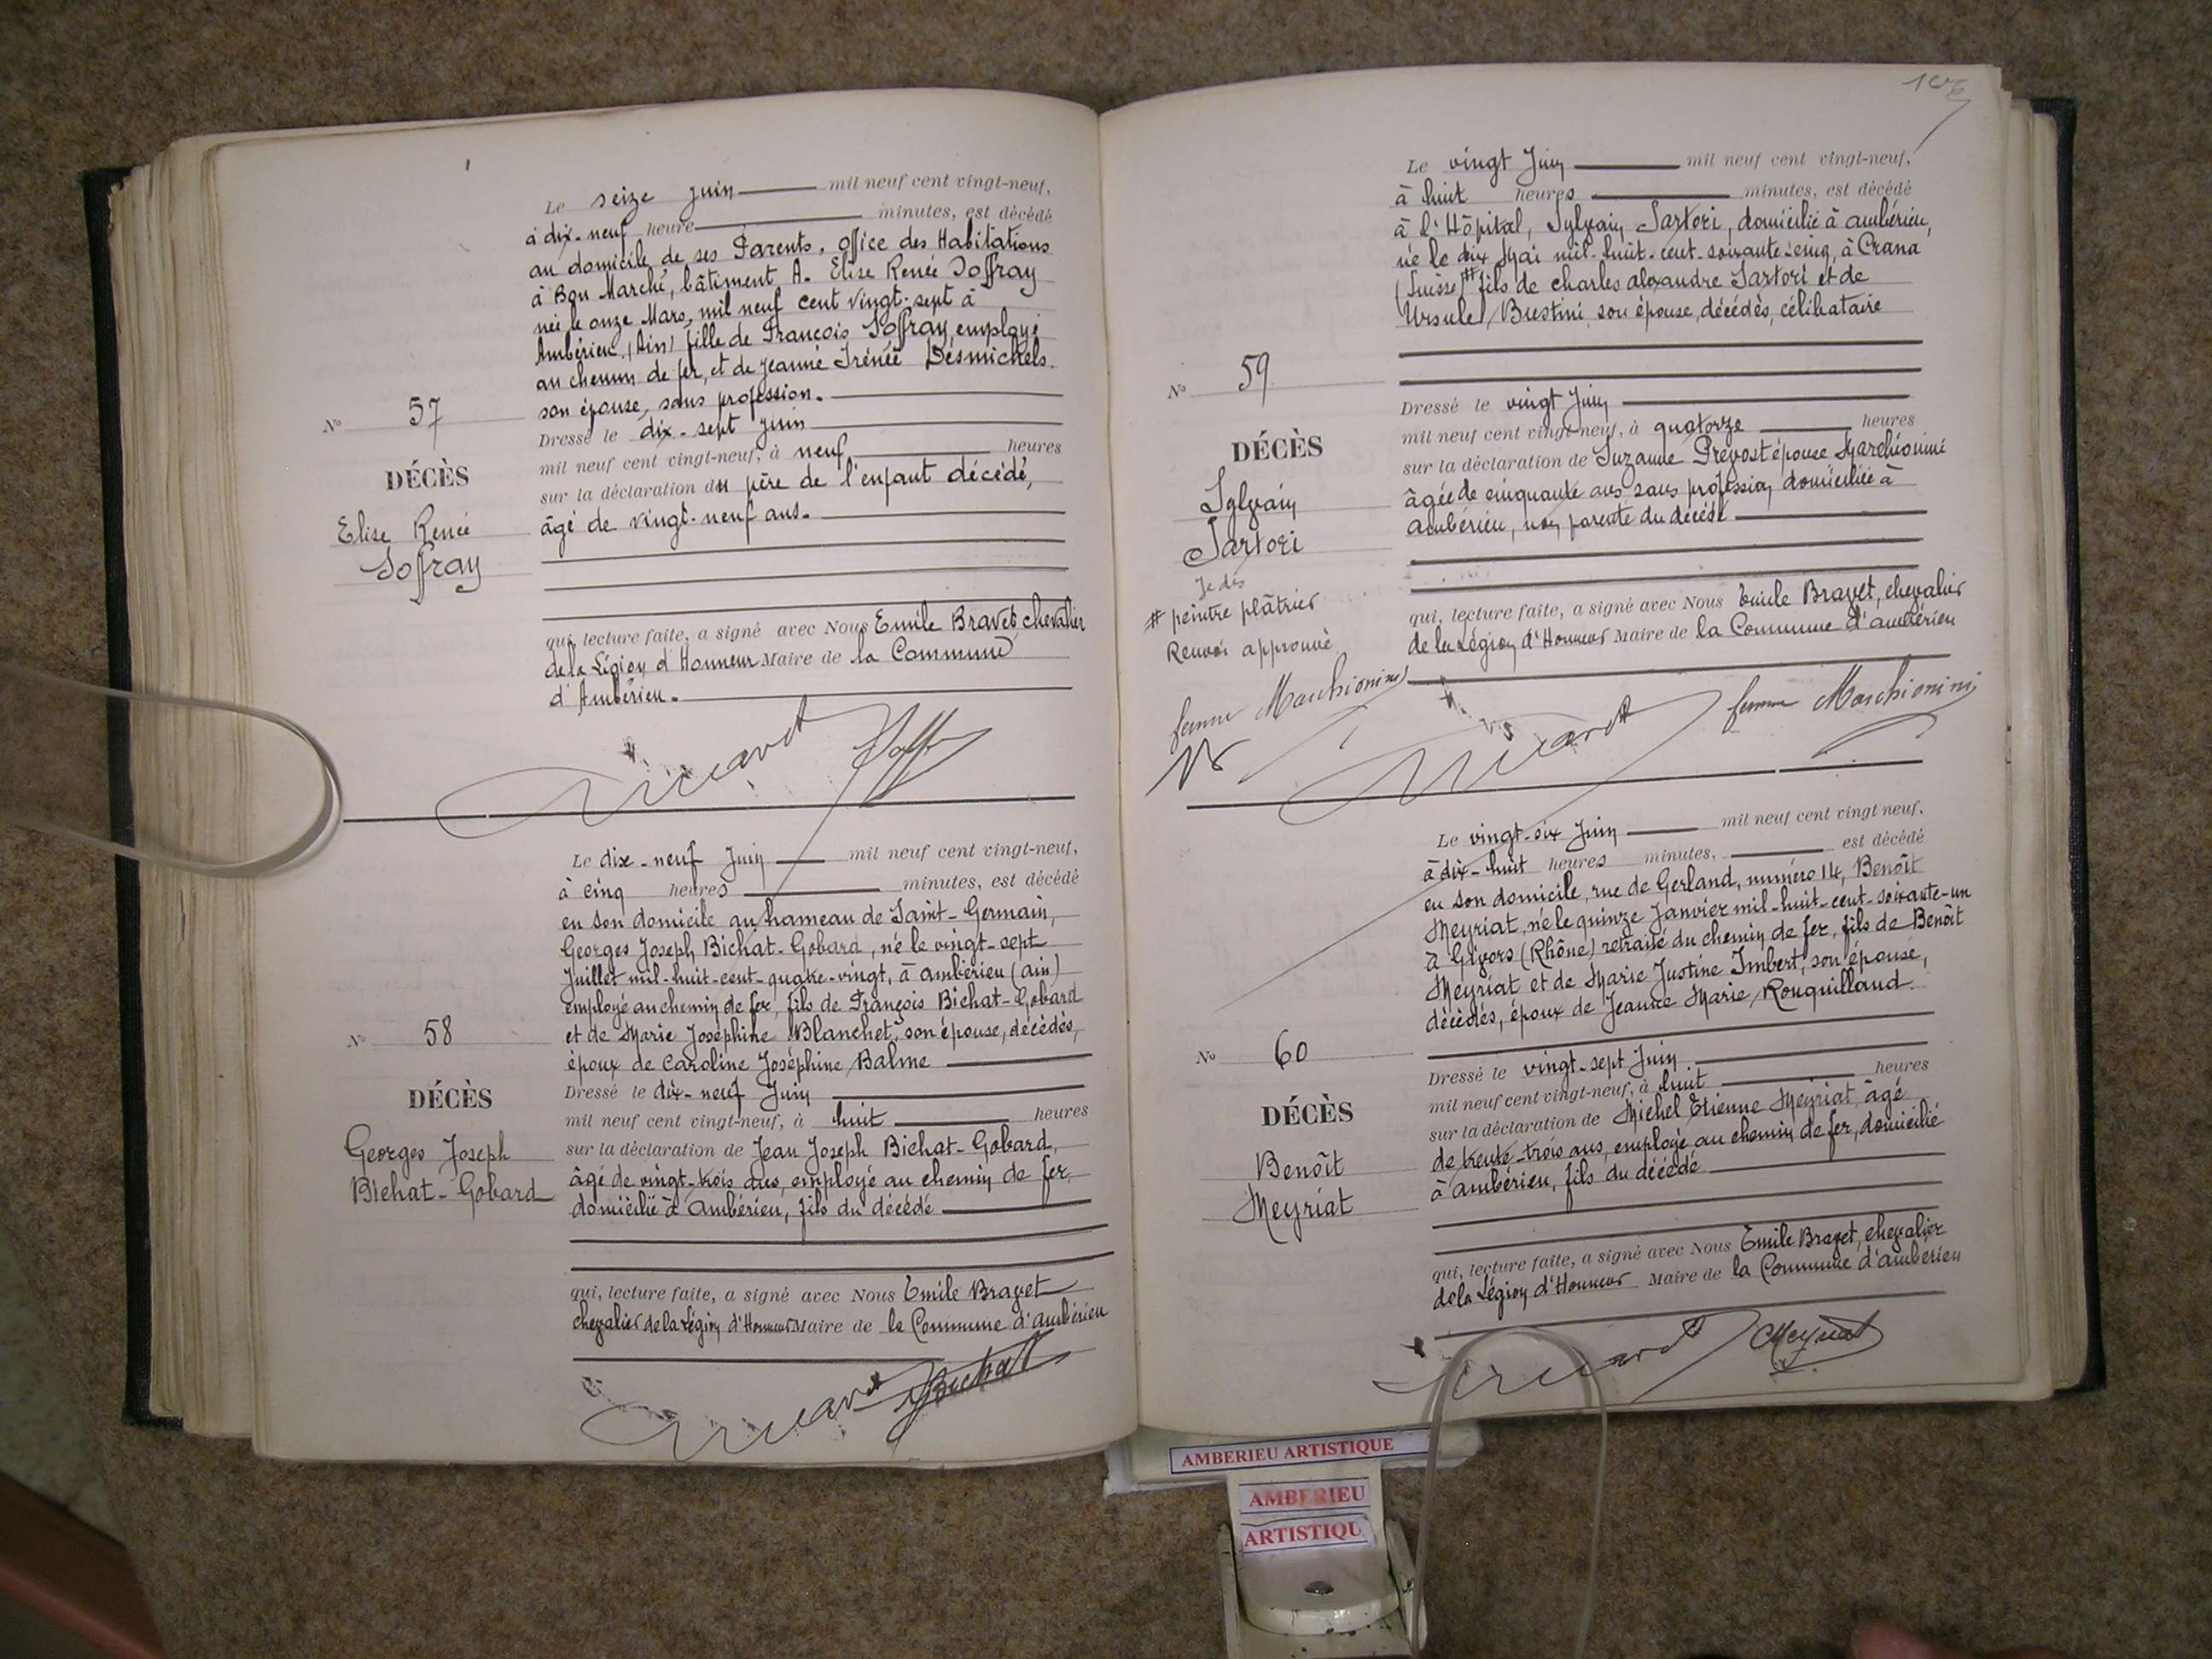 Le seize juin mil neuf cent vingt-neuf,
à dix-neuf heure minutes, est décédé
au domicile de ses Parents, office des Habitations
à Bon Marché, bâtiment A. Elise Renée Soffray
née le onze Mars, mil neuf cent vingt-sept à
Ambérieu (Ain) fille de François Soffray employé
au chemin de fer, et de Jeanne Irénée Désmichels
son épouse, sans profession.
No 57
Dressé le dix-sept juin
mil neuf cent vingt-neuf, à neuf heures
DÉCÈS
sur la déclaration du père de l'enfant décédé,
âgé de vingt-neuf ans.
Elise Renée
Soffray
qui, lecture faite, a signé avec Nous Emile Bravet chevalier
de la Légion d'Honneur Maire de la Commune
d'Ambérieu.
Le dix-neuf Juin mil neuf cent vingt-neuf,
à cinq heures minutes, est décédé
en son domicile au hameau de Saint-Germain,
Georges Joseph Bichat-Gobard, né le vingt-sept
Juillet mil-huit-cent-quatre-vingt, à ambérieu (ain)
employé au chemin de fer, fils de François Bichat-Gobard
et de Marie Joséphine Blanchet, son épouse, décédés,
époux de Caroline Joséphine Balme
No 58
Dressé le dix-neuf Juin
DÉCÈS
mil neuf cent vingt-neuf, à huit heures
sur la déclaration de Jean Joseph Bichat-Gobard,
âgé de vingt-trois ans, employé au chemin de fer,
domicilié à Ambérieu, fils du décédé
Georges Joseph
Bichat-Gobard
qui, lecture faite, a signé avec Nous Emile Bravet
chevalier de la Légion d'Honneur Maire de la Commune d'ambérieu
Bichat
Le vingt Juin mil neuf cent vingt-neuf,
à huit heures minutes, est décédé
à l'Hôpital, Sylvain Sartori, domicilié à ambérieu,
né le dix Mai mil-huit-cent-soixante-cinq, à Crana
(Suisse) # fils de charles alexandre Sartori et de
Ursule Bustini, son épouse, décédés, célibataire
No 59
Dressé le vingt Juin
mil neuf cent vingt-neuf, à quatorze heures
DÉCÈS
sur la déclaration de Suzanne Prevost épouse Marchionini
âgée de cinquante ans, sans profession, domiciliée à
ambérieu, non parente du décédé
Sylvain
Sartori
Je dis
# peintre plâtrier
Renvoi approuvé
qui, lecture faite, a signé avec Nous Emile Bravet, chevalier
de la Légion d'Honneur Maire de la Commune d'ambérieu
femme Marchionini
femme Marchionini
Le vingt-six Juin mil neuf cent vingt neuf,
à dix-huit heures minutes, est décédé
en son domicile, rue de Gerland, numéro 14, Benoît
Meyriat, né le quinze Janvier mil-huit-cent-soixante-un
à Givors (Rhône) retraité du chemin de fer, fils de Benoît
Meyriat et de Marie Justine Imbert, son épouse,
décédés, époux de Jeanne Marie Ronquilland
No 60
Dressé le vingt-sept Juin
mil neuf cent vingt-neuf, à huit heures
DÉCÈS
sur la déclaration de Michel Etienne Meyriat âgé
de trente-trois ans, employé au chemin de fer, domicilié
à ambérieu, fils du décédé
Benoît
Meyriat
qui, lecture faite, a signé avec Nous Emile Bravet, chevalier
de la Légion d'Honneur Maire de la Commune d'ambérieu
Meyriat
AMBERIEU ARTISTIQUE
AMBERIEU
ARTISTIQU